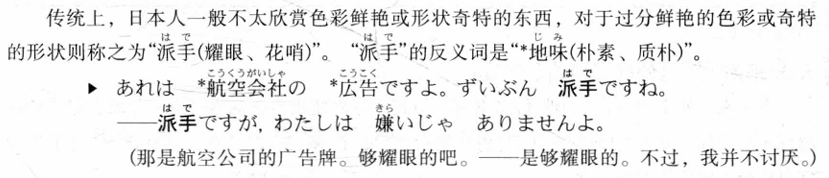 传统上，日本人一般不太欣赏色彩鲜艳或形状奇特的东西，对于过分鲜艳的色彩或奇特
は で
は で
じ み
的形状则称之为“派手(耀眼、花哨)”。 “派手”的反义词是“*地味(朴素、质朴)”。
こうくうがいしゃ
こうこく
は で
▶ あれは *航空会社の *広告ですよ。ずいぶん 派手ですね。
は で
きら
——派手ですが, わたしは 嫌いじゃ ありませんよ。
(那是航空公司的广告牌。够耀眼的吧。——是够耀眼的。不过，我并不讨厌。)